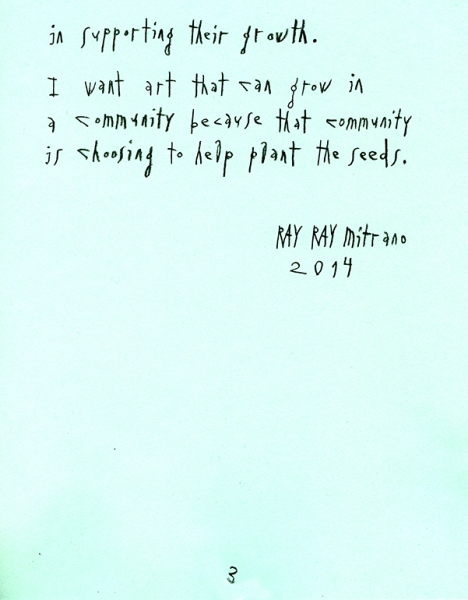 in supporting their growth.
I want art that can grow in
a community because that community
is choosing to help plant the seeds.
RAY RAY Mitrano
2014
3